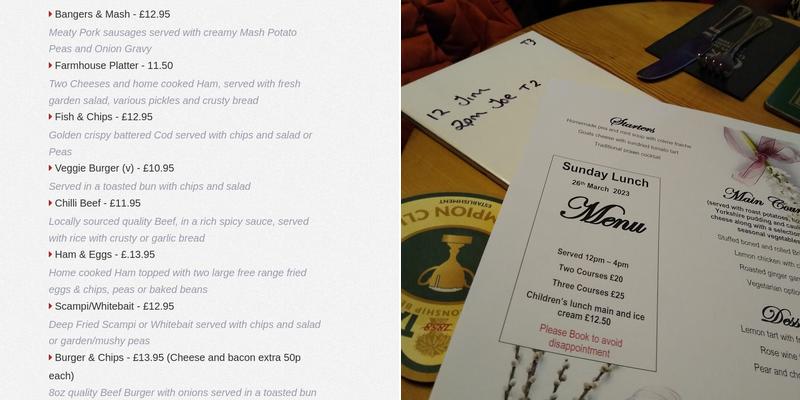 Bangers & Mash - £12.95
Meaty Pork sausages served with creamy Mash Potato
Peas and Onion Gravy
Farmhouse Platter - 11.50
Two Cheeses and home cooked Ham, served with fresh
garden salad, various pickles and crusty bread
Fish & Chips - £12.95
Golden crispy battered Cod served with chips and salad or
Peas
Veggie Burger (v) - £10.95
Served in a toasted bun with chips and salad
Chilli Beef - £11.95
Locally sourced quality Beef, in a rich spicy sauce, served
with rice with crusty or garlic bread
Ham & Eggs - £.13.95
Home cooked Ham topped with two large free range fried
eggs & chips, peas or baked beans
Scampi/Whitebait - £12.95
Deep Fried Scampi or Whitebait served with chips and salad
or garden/mushy peas
Burger & Chips - £13.95 (Cheese and bacon extra 50p
each)
8oz quality Beef Burger with onions served in a toasted bun
T3
12 Jim
2pm Joe T2
Starters
Homemade pea and mint soup with crème fraiche
Goats cheese with sundried tomato tart
Traditional prawn cocktail
Sunday Lunch
26th March 2023
Menu
Served 12pm – 4pm
Two Courses £20
Three Courses £25
Children's lunch main and ice
cream £12.50
Please Book to avoid
disappointment
Main
(served with roast potatoes,
Yorkshire pudding and
cheese along with a
seasonal vegetables
Stuffed boned and rolled
Lemon chicken with
Roasted ginger
Vegetarian
Lemon tart with
Rose wine
Pear and
ESTABLISHMENT